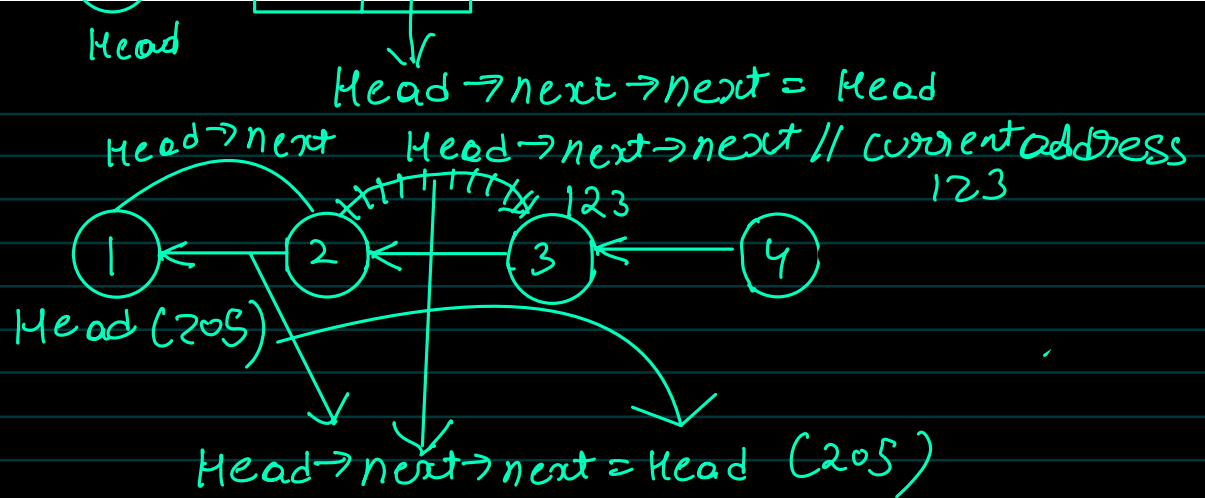 Head
Head→next→next = Head
Head→next
Head→next→next // current address
123
123
1 2 3 4
Head (205)
Head→next→next = Head (205)